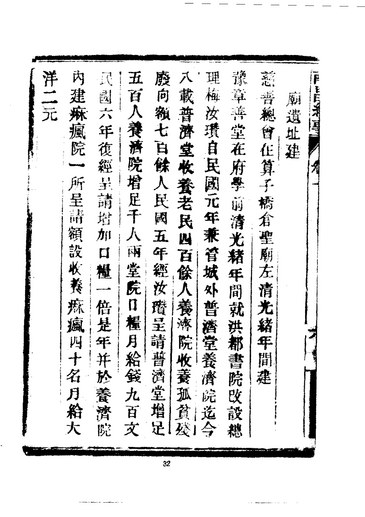 廟遺址建
慈善總會在算子橋倉聖廟左清光緒年間建
豫章善堂在府學前清光緒年間就洪都書院改設總
理梅汝瓚自民國元年兼管城外普濟堂養濟院迄今
八載普濟堂收養老民四百餘人養濟院收養孤貧殘
廢向額七百餘人民國五年經汝瓚呈請普濟堂增足
五百人養濟院增足千人兩堂院口糧月給錢九百文
民國六年復經呈請增加口糧一倍是年并於養濟院
內建麻瘋院一所呈請額設收養麻瘋四十名月給大
洋二元
32